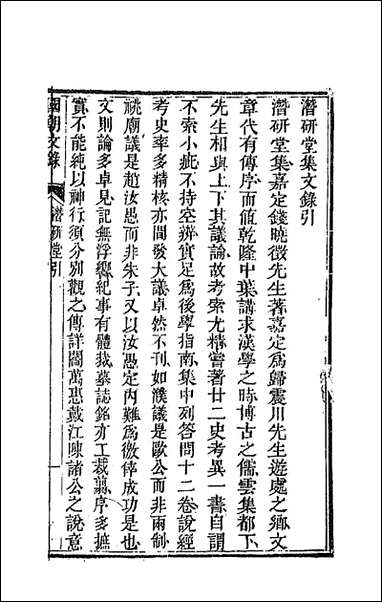 潛研堂集文錄引
潛研堂集嘉定錢曉徵先生著嘉定爲歸震川先生遊處之鄉文
章代有傳序而値乾隆中葉講求漢學之時博古之儒雲集都下
先生相與上下其議論故考索尤精嘗著廿二史考異一書自謂
不索小疵不持空辨實足爲後學指南集中列答問十二卷說經
考史率多精核亦間發大議卓然不刊如濮議是歐公而非兩制
祧廟議是趙汝愚而非朱子又以汝愚定內難爲徼倖成功是也
文則論多卓見記無浮響紀事有體裁墓誌銘亦工裁翦序多摭
實不能純以神行須分別觀之傳詳閻萬惠戴江陳諸公之說意
國朝文錄
潛研堂引